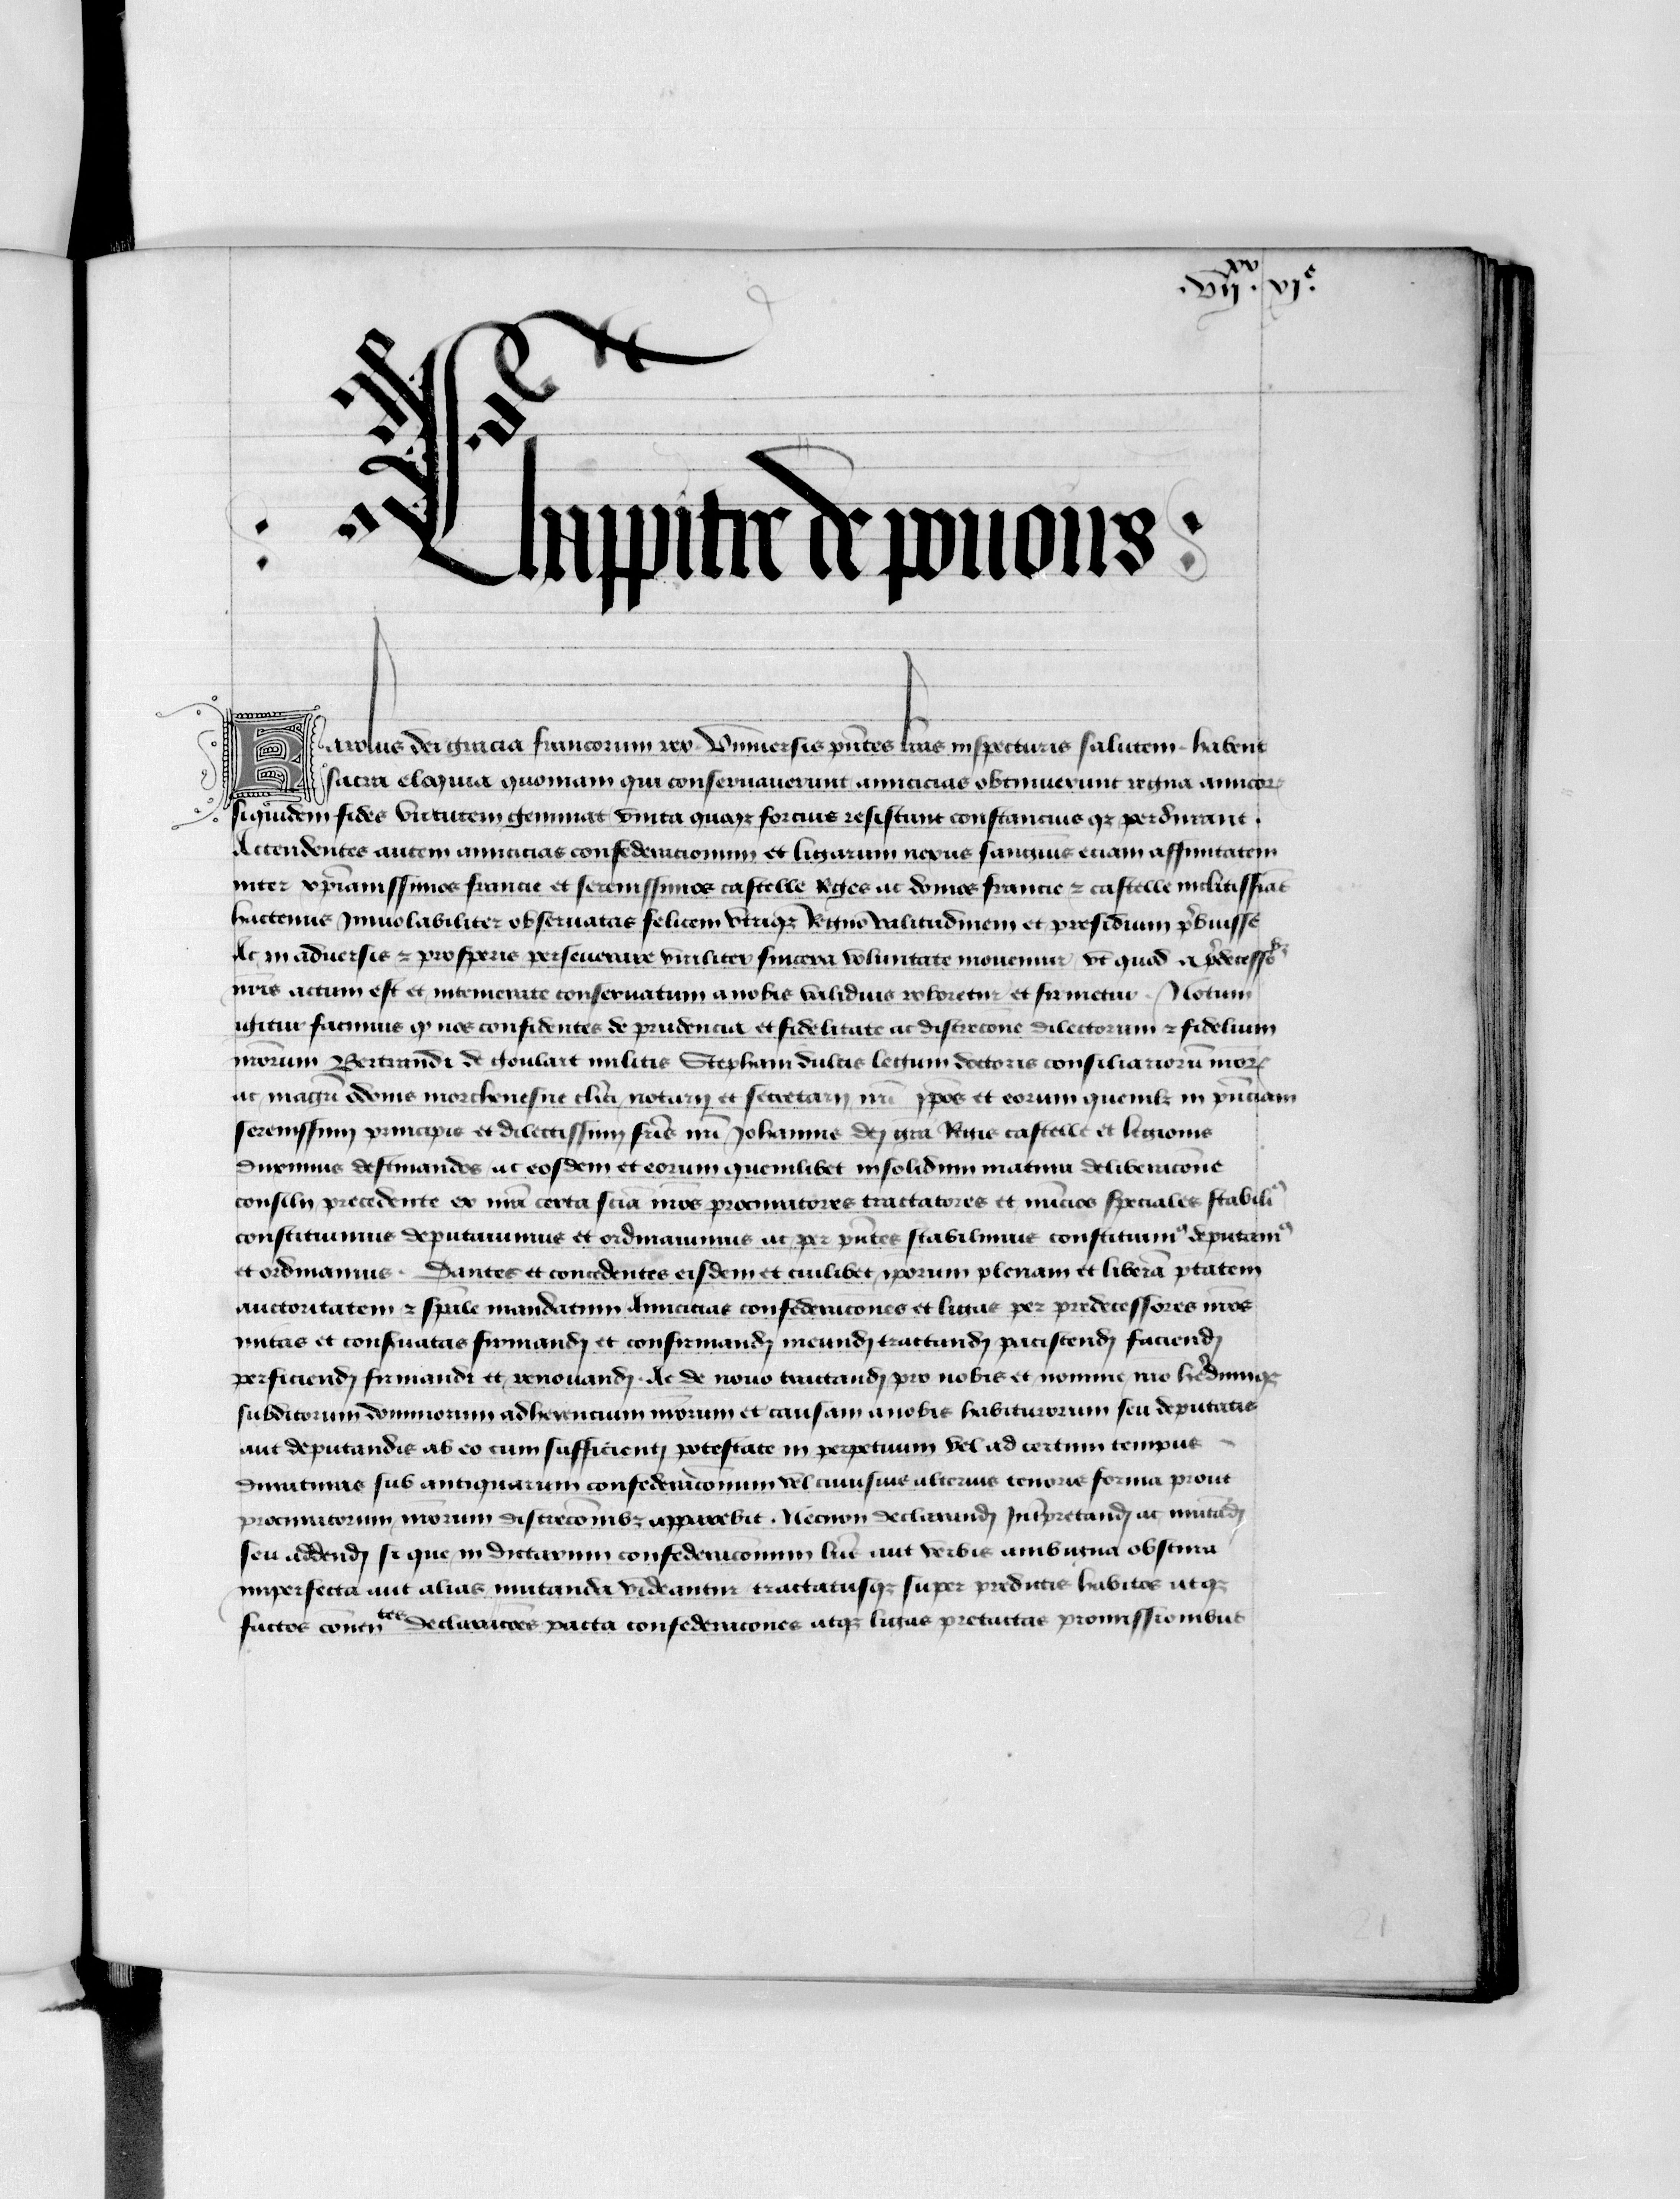 .vii.xx vj.e
Chappitre de pouoirs
Karolus dei gracia francorum rex. Vniuersis pñtes lr̃as inspecturis salutem. habent
sacra eloquia quoniam qui conseruauerunt amicicias obtinuerunt regna amicor̃
siquidem fides virtutem geminat vnita quoqz forcius resistunt constancius qz perdurant.
Attendentes autem amicicias confederacionum et ligarum nexus sanguis eciam affinitatem
inter xp̃ianissimos francie et serenissimos castelle Reges ac domos francie ⁊ castelle inclitissiãt
hactenus Inuiolabiliter obseruatas felicem vtriqz Regno valitudinem et presidium p̃buisse
Ac in aduersis ⁊ prosperis perseuerare viriliter sincera voluntate mouemur vt quod a p̃decessorbz
nr̃is actum est et intemerate conseruatum a nobis validius roboretur et firmetur. Notum
igitur facimus qr nos confidentes de prudencia et fidelitate ac discrecõne dilectorum ⁊ fidelium
nr̃orum Bertrandi de goulart militis Stephani dulcis legum doctoris consiliariorũ nr̃or̃
ac magr̃i Odonis morchenesne cl̃ici notarij et secretarij nr̃i ip̃os et eorum quemlz in pñciam
serenissimj principis et dilectissimj fr̃is nr̃i Johannis dej gr̃a Regis castelle et legionis
duximus destinandos ac eosdem et eorum quemlibet insolidum matura deliberacõne
consilij precedente ex nr̃a certa sciã nr̃os procuratores tractatores et nũcios speciales stabili9
constituimus deputauimus et ordinauimus ac per pñtes stabilimus constituim9 deputam9
et ordinamus. Dantes et concedentes eisdem et cuilibet ip̃orum plenam et liberã p̃tatem
auctoritatem ⁊ spãle mandatum Amicicias confederacões et ligas per predecessores nr̃os
initas et conseruatas firmandj et confirmandj ineundj tractandj paciscendj faciendj
perficiendj firmandi et renouandj. Ac de nouo tractandj pro nobis et nomine nr̃o hẽdumqz
subditorum dominorum adherencium nr̃orum et causam a nobis habiturorum seu deputatis
aut deputandis ab eo cum sufficientj potestate in perpetuum vel ad certum tempus
duraturas sub antiquarum confederacõnum vel cuiusuis alterius tenoris forma prout
procuratorum nr̃orum discrecõnibz apparebit. Necnon declarandj Int̃pretandj ac mutãdj
seu addendj si que in dictarum confederacõnum lr̃is aut verbis ambigua obscura
imperfecta aut alias mutanda videantur tractatusqz super predictis habitos atqz
factos conẽntes declaracões pacta confederacões atqz ligas pretactas promissionibus
21